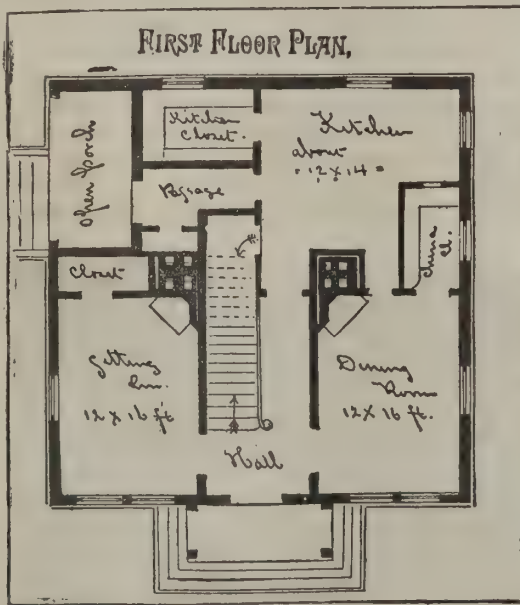 FIRST FLOOR PLAN,
Kitchen
Closet.
Kitchen
about
12 X 14
Open Porch
Passage
China
Cl.
Closet
Sitting
Rm.
12 X 16 ft
Dining
Room
12 X 16 ft.
Hall